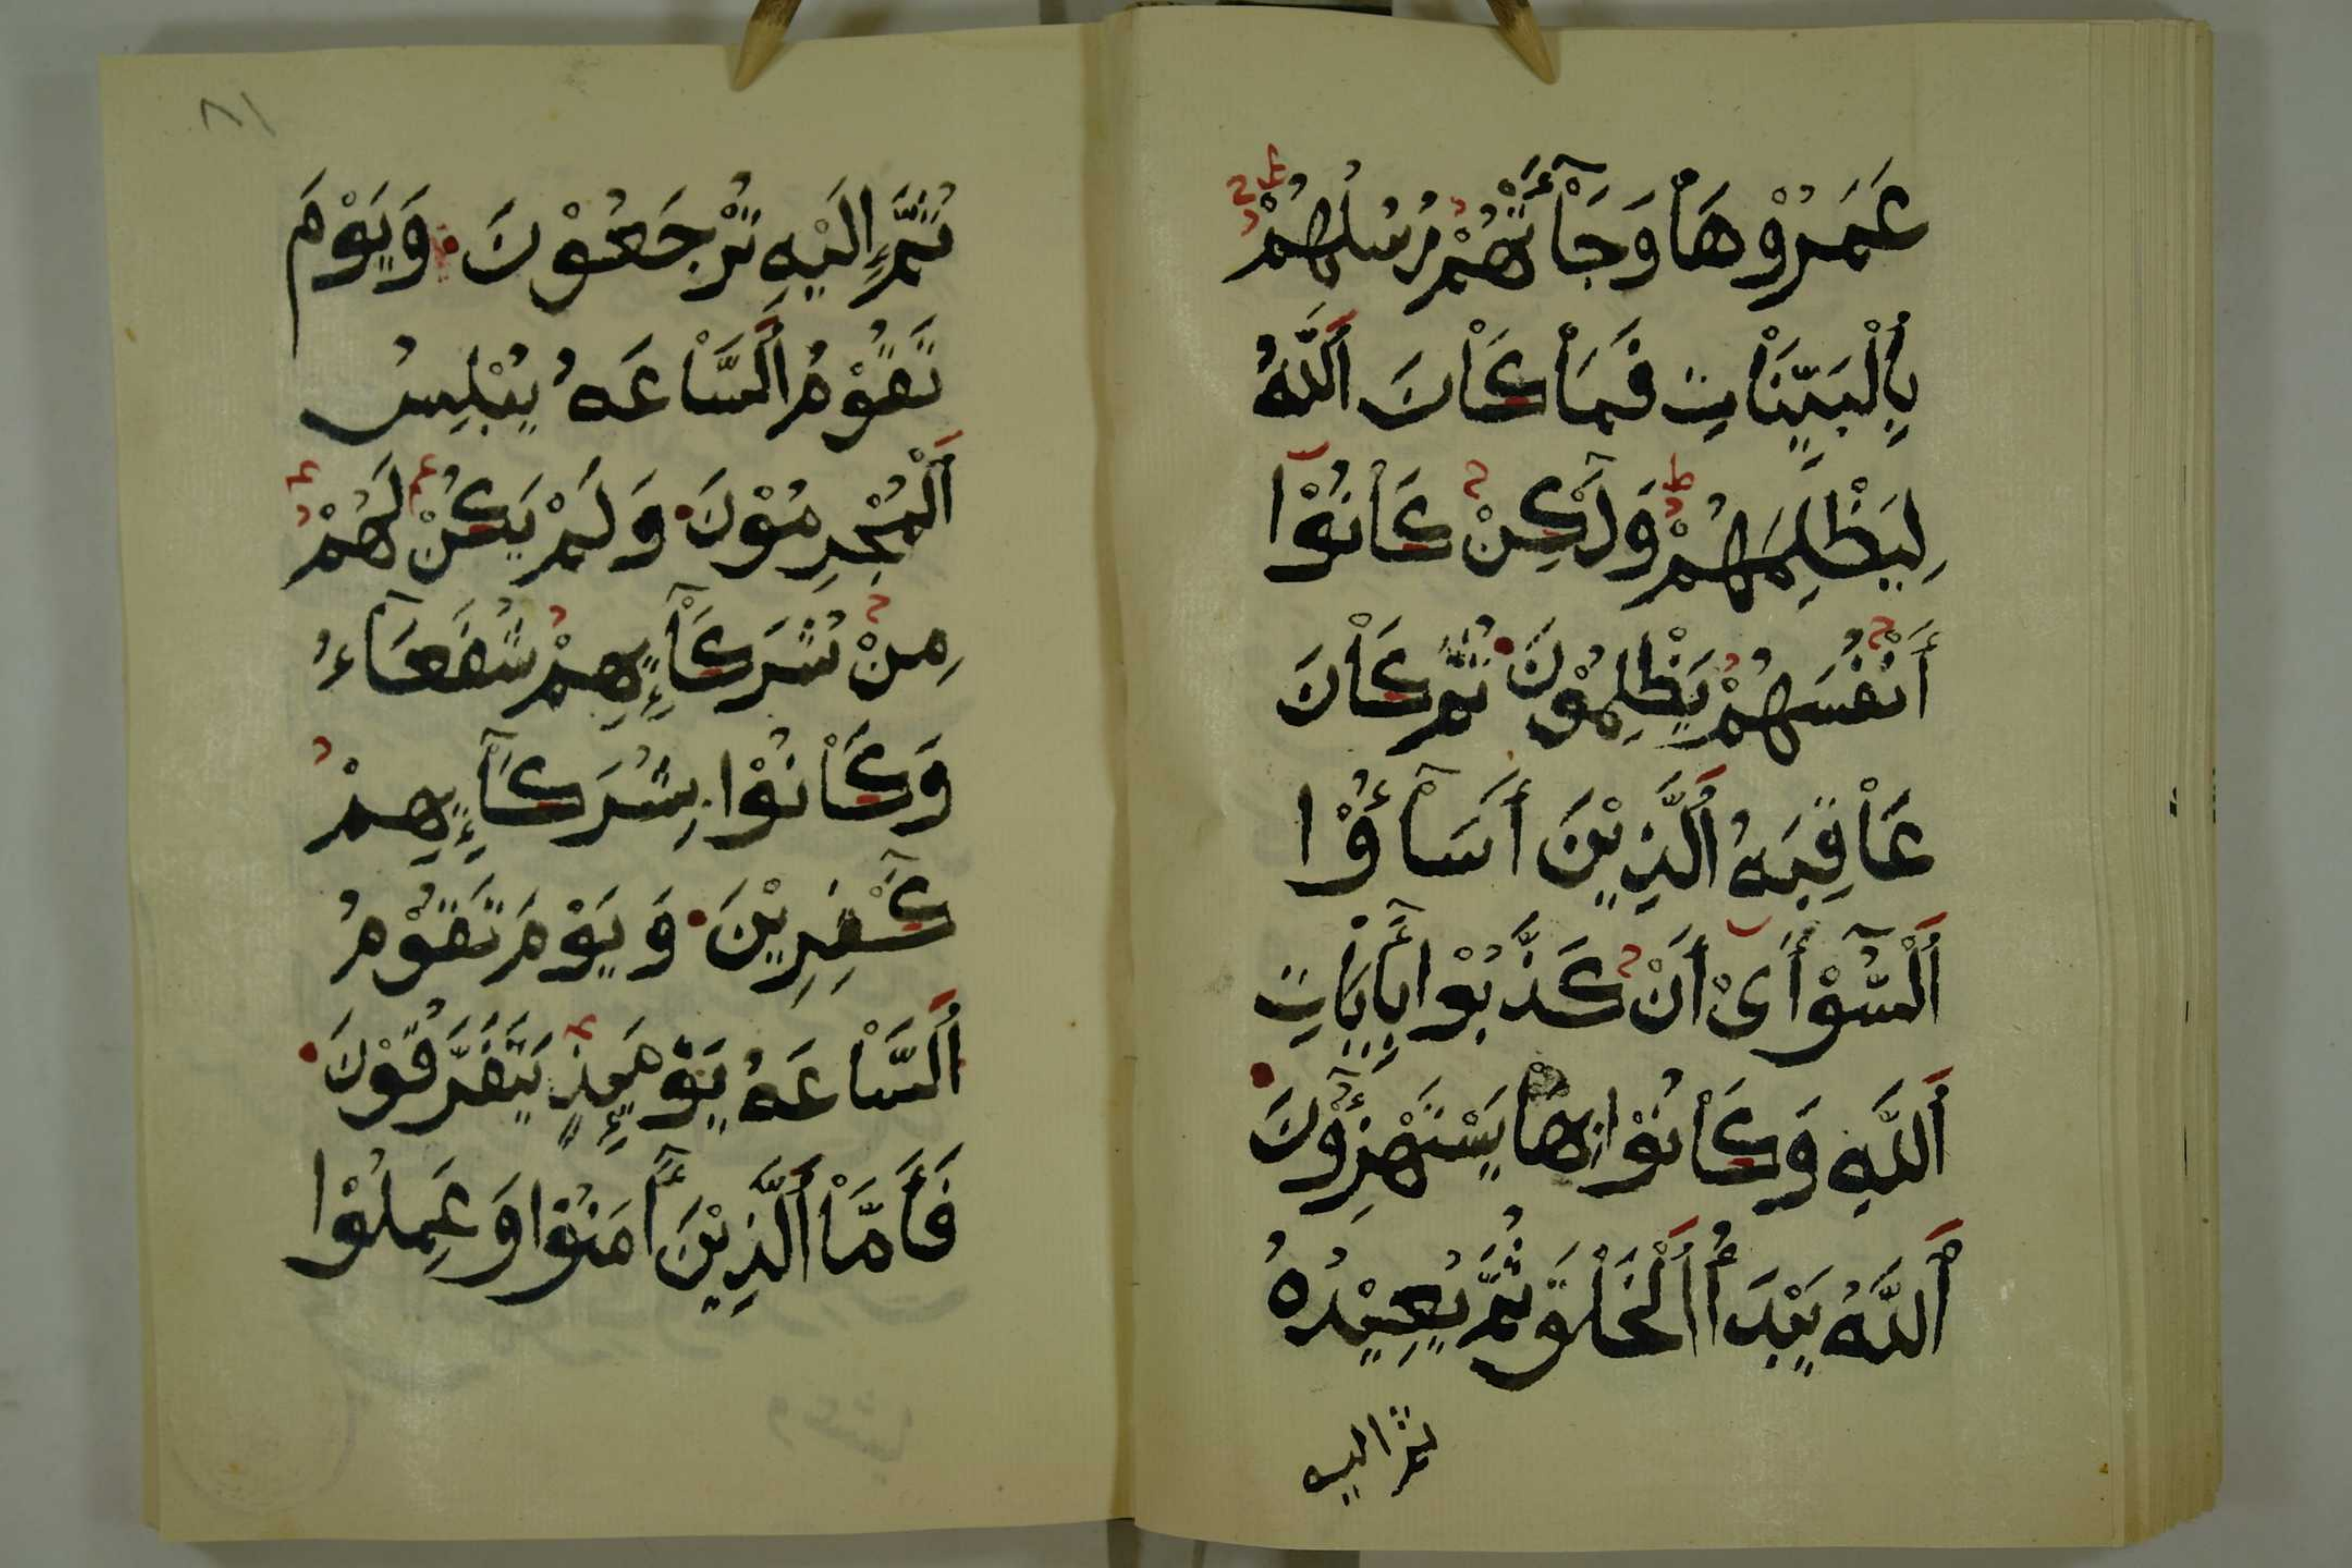 عَمَرُوْهَاْ وَجَاْۤءَتْهُمْ رُسُلُهُمْ
بِاْلْبَيِّنَاْتِ فَمَاْ كَاْنَ اَللَّهُ
لِيَظْلِمَهُمْ وَلَٰكِنْ كَاْنُوْا
أَنْفُسَهُمْ يَظْلِمُوْنَ ثُمَّ كَاْنَ
عَاْقِبَهُ اَلَّذِيْنَ أَسَاْۤؤُوْا
اَلْسُّوْۤأَىْ أَنْ كَذَّبُوْا بِأَيَاْتِ
اَللَّهِ وَكَاْنُوْا بِهَاْ يَسْتَهْزِؤُوْنَ
اَللَّهُ يَبْدَأُ اَلْخَلْقَ ثُمَّ يُعِيْدُهُ
ثم اليه
٨١
ثُمَّ إِلَيْهِ تُرْجَعُوْنَ وَيَوْمَ
تَقُوْمُ اَلسَّاْعَهُ يُبْلِسُ
اَلْمُجْرِمُوْنَ وَلَمْ يَكُنْ لَهُمْ
مِنْ شُرَكَاْۤئِهِمْ شُفَعَاۤءُ
وَكَاْنُوْا بِشُرَكَاۤئِهِمْ
كَٰفِرِيْنَ وَيَوْمَ تَقُوْمُ
اَلسَّاْعَهُ يَوْمَئِذٍ يَتَفَرَّقُوْنَ
فَأَمَّاْ اَلَّذِيْنَ أۤمَنُوْا وَعَمِلُوْا